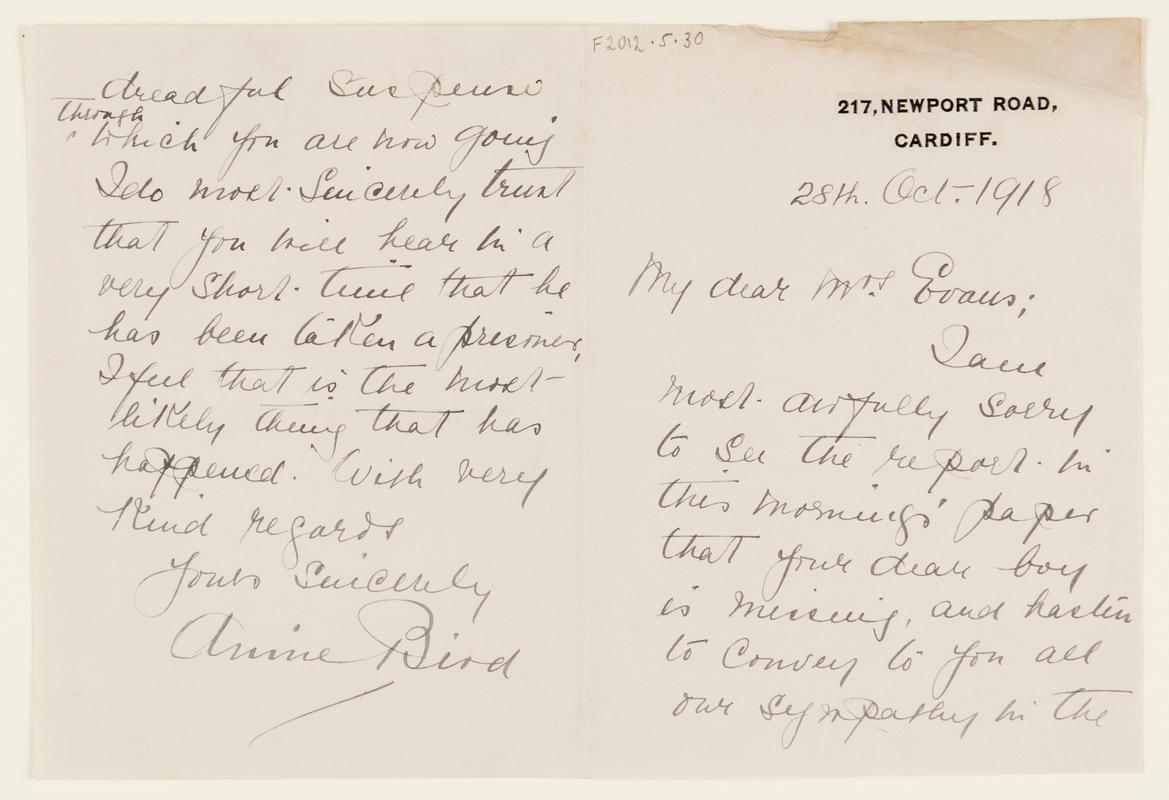 F2012.5.30
217, NEWPORT ROAD,
CARDIFF.
28th. Oct. 1918
My dear Mrs Evans;
I am
most awfully sorry
to see the report in
this morning's paper
that your dear boy
is missing, and hasten
to convey to you all
our sympathy in the
dreadful suspense
through
^ which you are now going
I do most sincerely trust
that you will hear in a
very short time that he
has been taken a prisoner,
I feel that is the most
likely thing that has
happened. With very
kind regards
Yours sincerely
Annie Bird